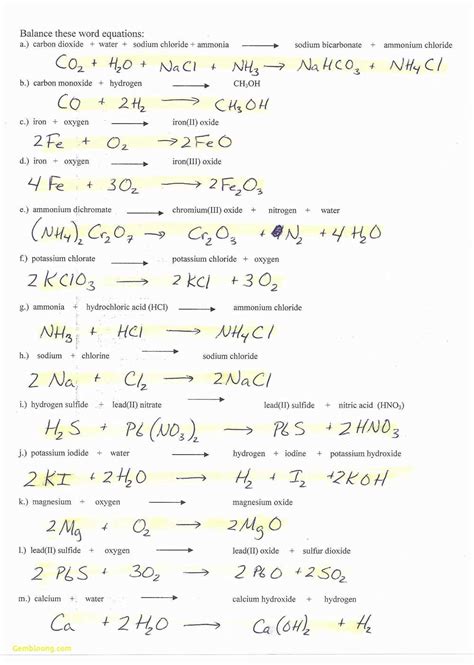 Balance these word equations:
a.) carbon dioxide + water + sodium chloride + ammonia → sodium bicarbonate + ammonium chloride
CO₂ + H₂O + NaCl + NH₃ → NaHCO₃ + NH₄Cl
b.) carbon monoxide + hydrogen → CH₃OH
CO + 2H₂ → CH₃OH
c.) iron + oxygen → iron(II) oxide
2Fe + O₂ → 2FeO
d.) iron + oxygen → iron(III) oxide
4Fe + 3O₂ → 2Fe₂O₃
e.) ammonium dichromate → chromium(III) oxide + nitrogen + water
(NH₄)₂Cr₂O₇ → Cr₂O₃ + N₂ + 4H₂O
f.) potassium chlorate → potassium chloride + oxygen
2KClO₃ → 2KCl + 3O₂
g.) ammonia + hydrochloric acid (HCl) → ammonium chloride
NH₃ + HCl → NH₄Cl
h.) sodium + chlorine → sodium chloride
2Na + Cl₂ → 2NaCl
i.) hydrogen sulfide + lead(II) nitrate → lead(II) sulfide + nitric acid (HNO₃)
H₂S + Pb(NO₃)₂ → PbS + 2HNO₃
j.) potassium iodide + water → hydrogen + iodine + potassium hydroxide
2KI + 2H₂O → H₂ + I₂ + 2KOH
k.) magnesium + oxygen → magnesium oxide
2Mg + O₂ → 2MgO
l.) lead(II) sulfide + oxygen → lead(II) oxide + sulfur dioxide
2PbS + 3O₂ → 2PbO + 2SO₂
m.) calcium + water → calcium hydroxide + hydrogen
Ca + 2H₂O → Ca(OH)₂ + H₂
Gembloong.com